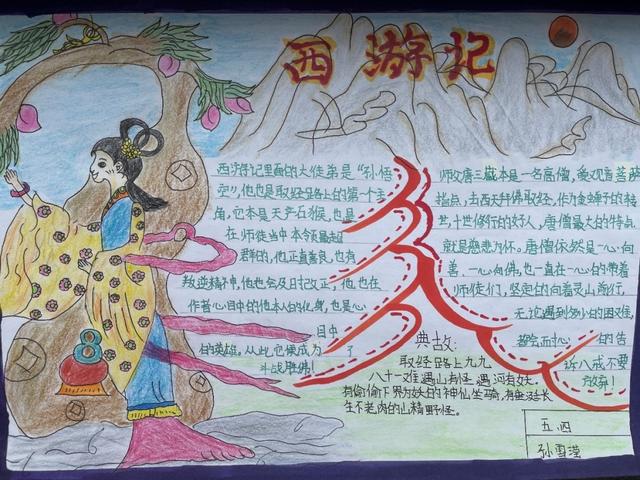 西游记
西游记里面的大徒弟是“孙悟
空”，他也是取经路上的第一个主
角，它本是天产石猴，也是
在师徒当中本领最超
群的，他正直善良，也有
叛逆精神，他也会及时改正，他也在
作者心目中的他本人的化身，也是心
目中
的英雄，从此，它候成为了
斗战胜佛！
师父唐三藏本是一名高僧，受观音菩萨
指点，去西天拜佛取经，作为金蝉子的转
世，十世修行的好人，唐僧最大的特点
就是慈悲为怀。唐僧依然是一心向
善，一心向佛，也一直在一心的带着
师徒们，坚定的向着灵山前行，
无论遇到多少的困难，
都会耐心的告
诉八戒不要
放弃！
典故：
取经路上九九
八十一难遇山有怪遇河有妖。
有偷偷下界为妖的神仙坐骑，有垂涎长
生不老肉的山精野怪。
五.四
孙雪滢